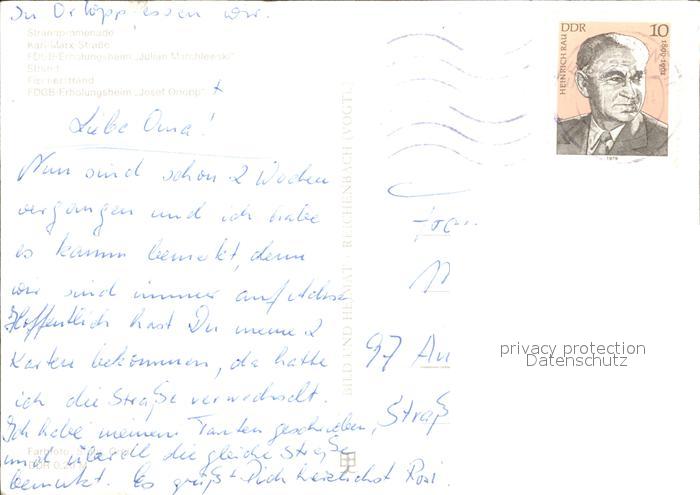 In Orlopp essen wir.
Strandpromenade
Karl-Marx-Straße
FDGB-Erholungsheim "Julian Marchlewski"
Strand
FDGB-Erholungsheim "Josef Orlopp" +
Liebe Oma!
Nun sind schon 2 Wochen
vergangen und ich habe
es kaum bemerkt, denn
wir sind immer auf Achse
Hoffentlich hast Du meine 2
Karten bekommen, da hatte
ich die Straße verwechselt.
Ich habe meinen Tanten geschrieben,
und überall die gleiche Straße
benutzt. Es grüßt Dich herzlichst Rosi.
BILD UND HEIMAT · REICHENBACH (VOGTL)
DDR 10
HEINRICH RAU
1899-1961
1979
97 An
Straß
privacy protection
Datenschutz